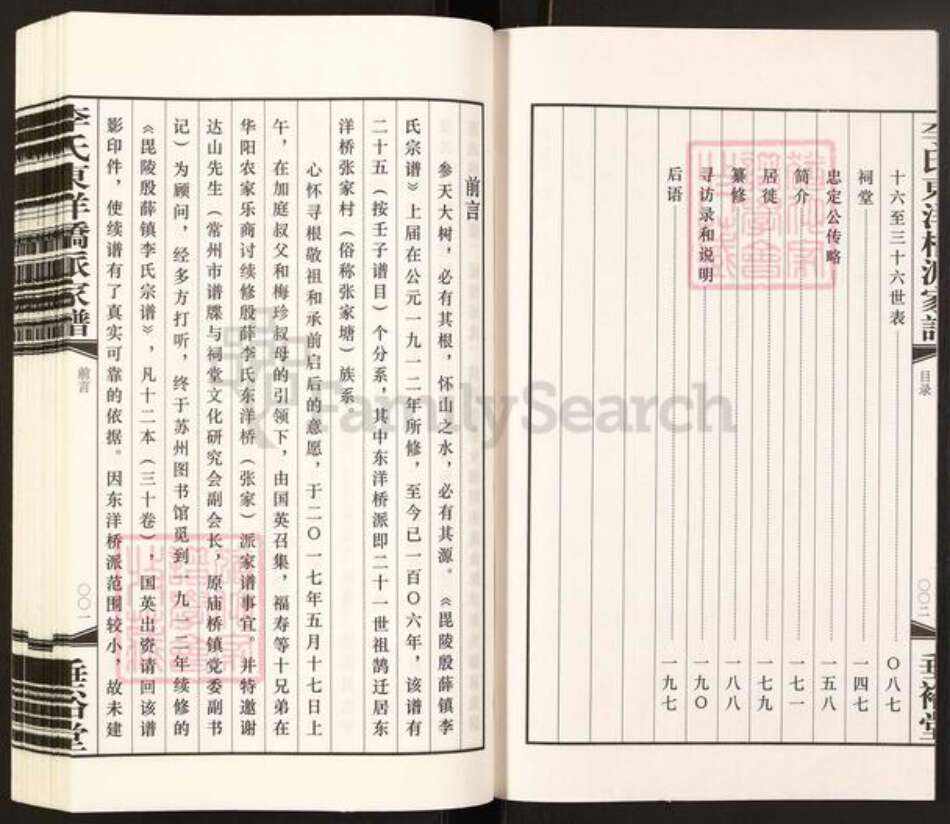 李氏东洋桥派家谱
目录
〇〇二
垂裕堂
十六至三十六世表 〇八七
祠堂 一四七
忠定公传略 一五八
简介 一七一
居徙 一七九
纂修 一八八
寻访录和说明 一九〇
后语 一九七
前言
参天大树，必有其根，怀山之水，必有其源。《毘陵殷薛镇李
氏宗谱》上届在公元一九一二年所修，至今已一百〇六年，该谱有
二十五（按壬子谱目）个分系，其中东洋桥派即二十一世祖鹄迁居东
洋桥张家村（俗称张家塘）族系
心怀寻根敬祖和承前启后的意愿，于二〇一七年五月十七日上
午，在加庭叔父和梅珍叔母的引领下，由国英召集，福寿等十兄弟在
华阳农家乐商讨续修殷薛李氏东洋桥（张家）派家谱事宜。并特邀谢
达山先生（常州市谱牒与祠堂文化研究会副会长，原庙桥镇党委副书
记）为顾问，经多方打听，终于苏州图书馆觅到一九一二年续修的
《毘陵殷薛镇李氏宗谱》，凡十二本（三十卷），国英出资请回该谱
影印件，使续谱有了真实可靠的依据。因东洋桥派范围较小，故未建
李氏東洋橋派家譜
前言
〇〇一
垂裕堂
FamilySearch